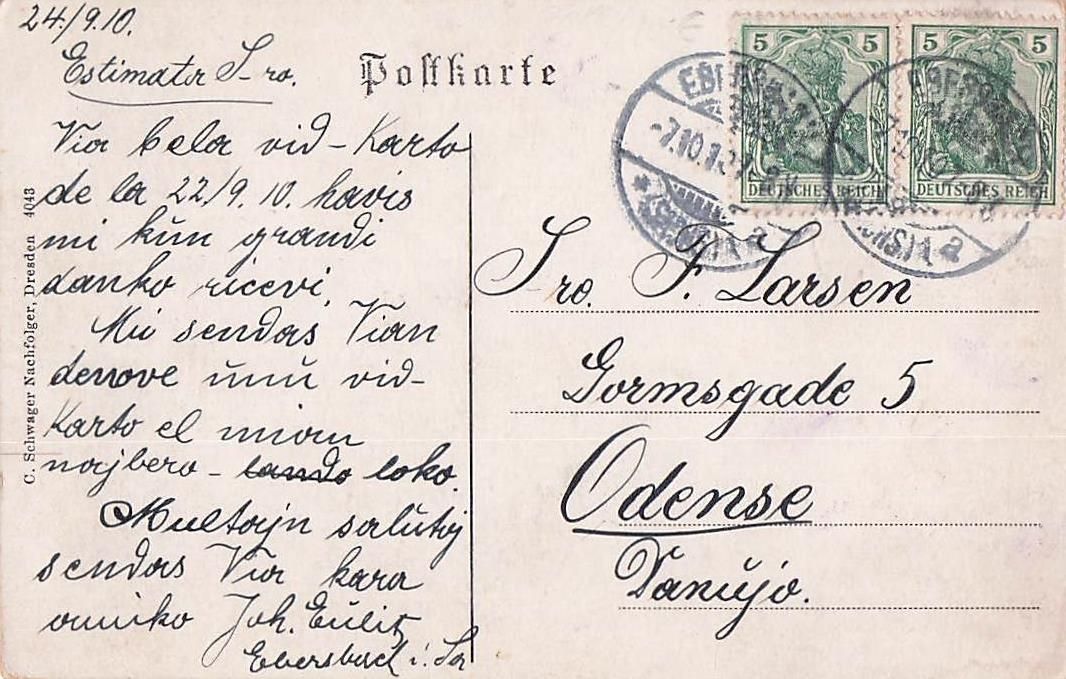 24./9.10.
Estimata S-ro.
Postkarte
Via bela vid-Karto
de la 22/9.10. havis
mi kun grandi
danko ricevi.
Mi sendas Vian
denove unu vid-
Karto el mian
najbero - lando loko.
Multajn salutoj
sendas Via kara
amiko Joh.
Ebersbach i. Sa
C. Schwager Nachfolger, Dresden 4043
5 5
DEUTSCHES REICH
5 5
DEUTSCHES REICH
-7.10.10
(SACHS.) a
Sro. F. Larsen
Gormsgade 5
Odense
Danujo.